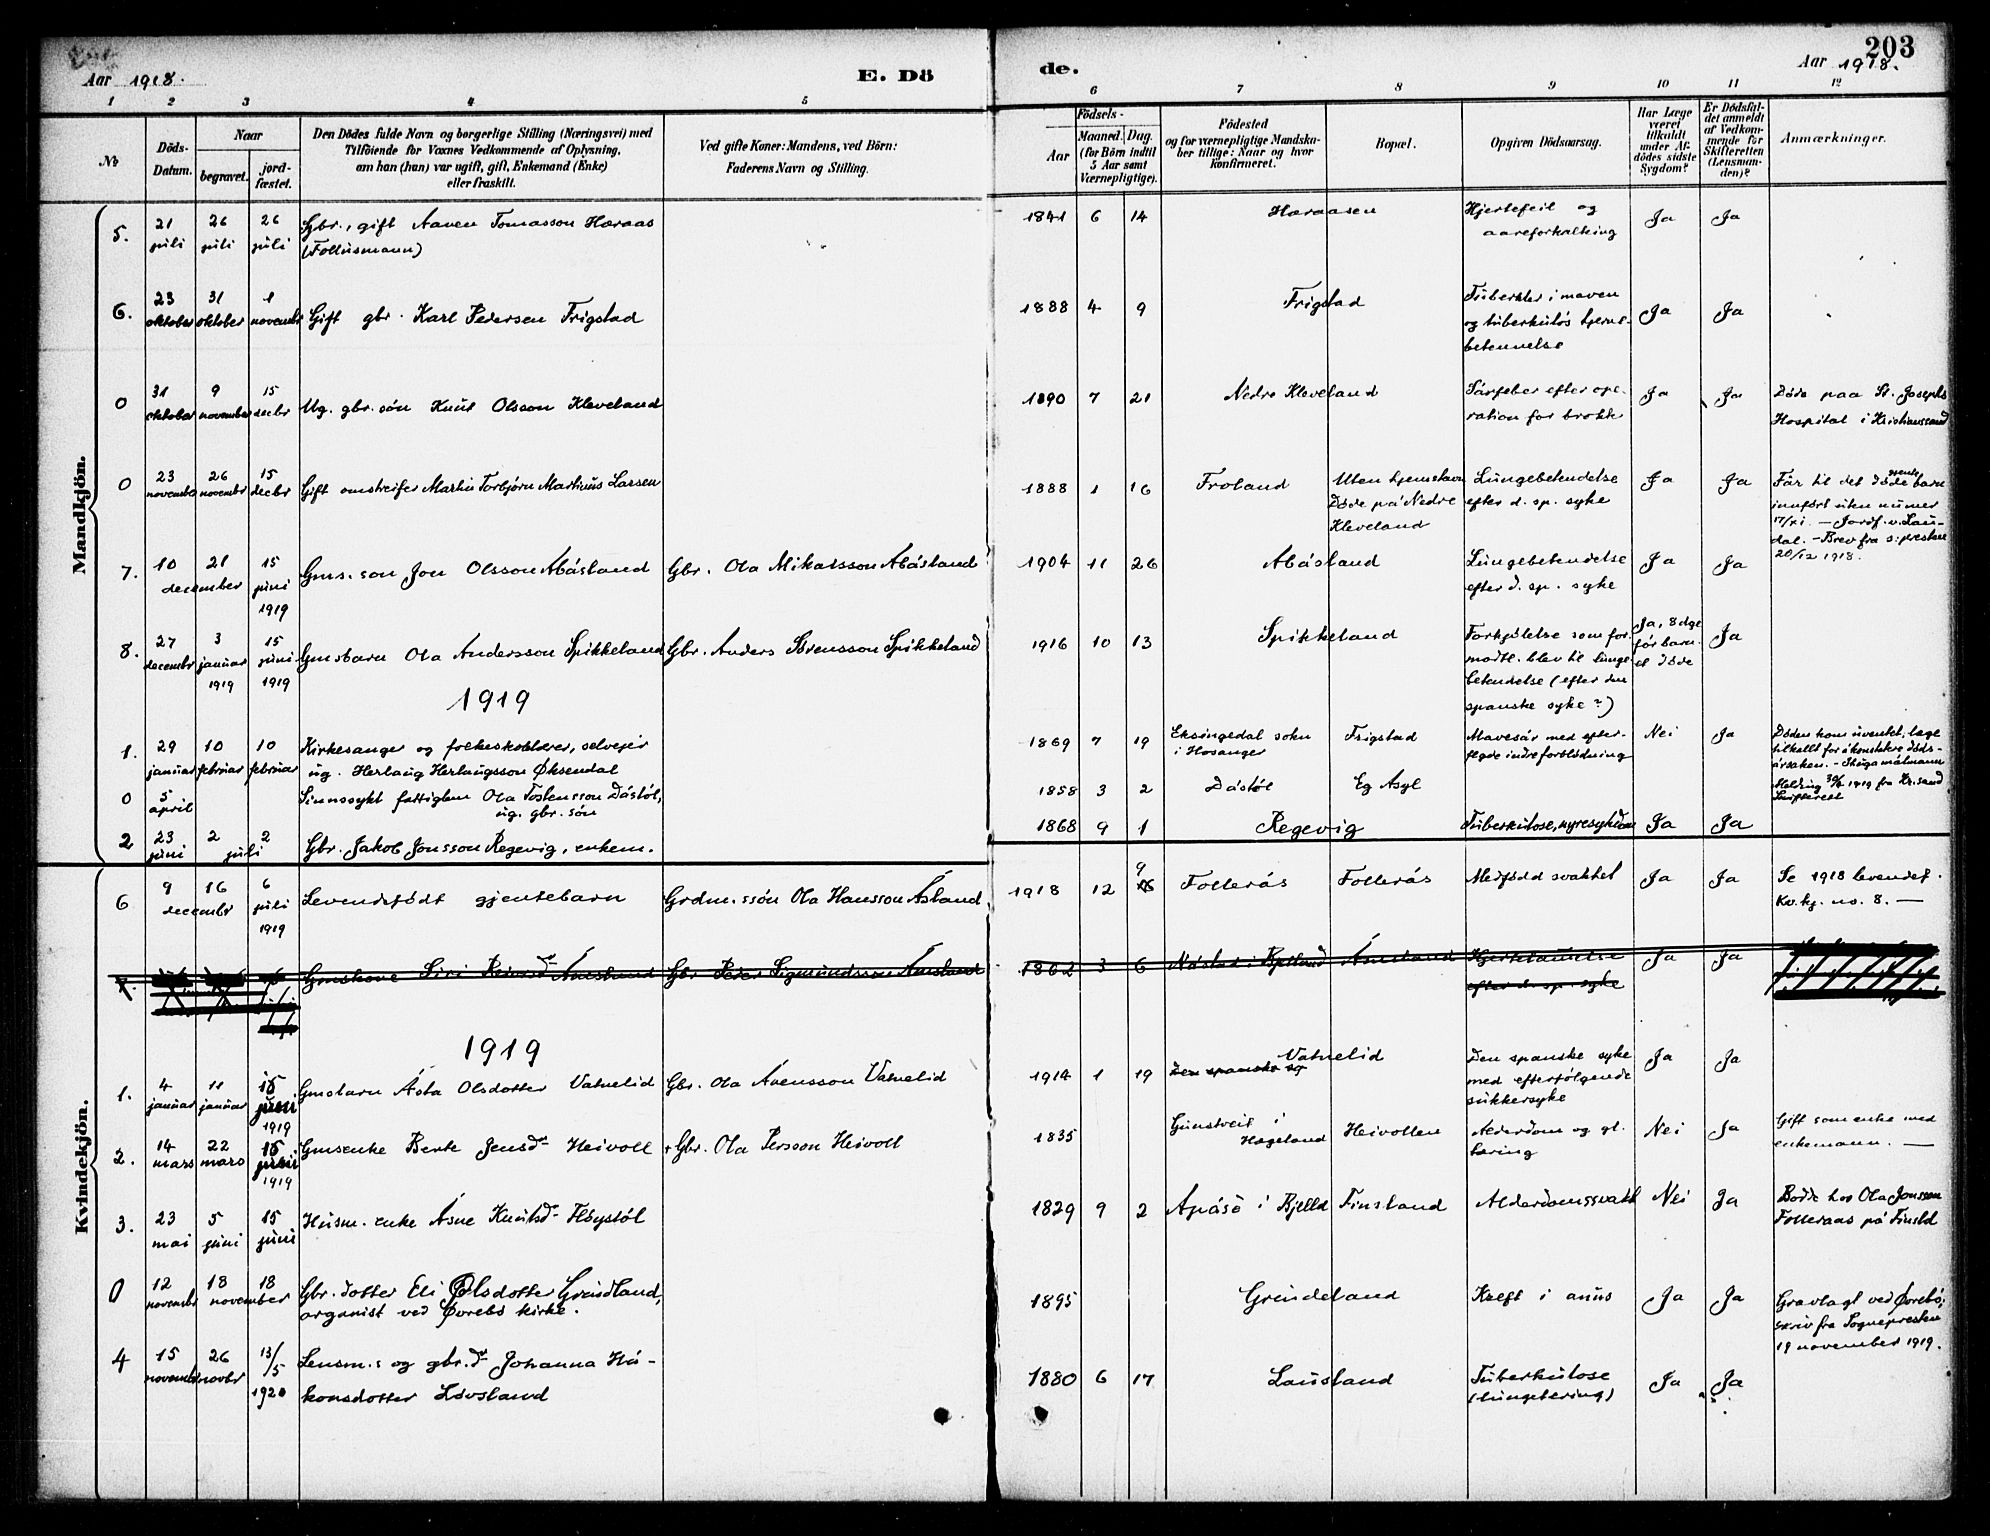 203
Aar 1918. E. Dö de. Aar 1918.
1 2 3 4 5 6 7 8 9 10 11 12
No
Döds-Datum.
Naar
begravet.
jord-fæstet.
Den Dödes fulde Navn og borgerlige Stilling (Næringsvei) med
Tilföiende for Voxnes Vedkommende af Oplysning,
om han (hun) var ugift, gift, Enkemand (Enke)
eller fraskilt.
Ved gifte Koner: Mandens, ved Börn:
Faderens Navn og Stilling.
Födsels-
Aar
Maaned. Dag.
(for Börn indtil
5 Aar samt
Værnepligtige).
Födested
og for værnepligtige Mandska-
ber tillige: Naar og hvor
konfirmeret.
Bopæl.
Opgiven Dödsaarsag.
Har Læge
været
tilkaldt
under Af-
dödes sidste
Sygdom?
Er Dödsfal-
det anmeldt
af Vedkom-
mende for
Skifteretten
(Lensman-
den)?
Anmærkninger.
Mandkjön.
5. 21 juli 26 juli 26 juli Gbr., gift Aanen Tomasson Høraas
(Follusmann)
1841 6 14 Høraasen Hjertefeil og
aareforkalkning Ja Ja
6. 23 oktober 31 oktober 1 novembr Gift gbr. Karl Pedersen Frigstad
1888 4 9 Frigstad Tuberkler i maven
og tuberkuløs hjerne-
betennelse Ja Ja
0 31 oktober 9 november 15 decbr Ug. gbr. søn Knut Olsson Kleveland
1890 7 21 Nedre Kleveland Sårfeber efter ope-
ration for brokk Ja Ja Døde paa St. Josephs
Hospital i Kristianssand
0 23 novembr 26 novembr 15 decbr Gift omstreifer Martin Torbjørn Martinus Larsen
1888 1 16 Froland Uten hjemstavn
Døde på Nedre
Kleveland
Lungebetendelse
efter d. sp. syke Ja Ja
Far til det døde barn
innført uten numer
17/XI. — Jordf. v. Lau-
dal. — Brev fra s.presten
20/12 1918.
7. 10 21 december 15 juni 1919 Gms. søn Jon Olsson Abåsland Gbr. Ola Mikalsson Abåsland
1904 11 26 Abåsland Lungebetendelse
efter d. sp. syke Ja Ja
8. 27 decembr 3 januar 1919 15 juni 1919 Gmsbarn Ola Andersson Spikkeland Gbr. Anders Sørensson Spikkeland
1916 10 13 Spikkeland Forkjølelse som for-
modtl. blev til lunge-
betendelse (efter den
spanske syke?)
Ja, 8 dge
før barn-
et døde Ja
1919
1. 29 januar 10 februar 10 februar Kirkesanger og folkeskolelærer, selveier
ug. Herlaug Herlaugsson Øksendal
1869 7 19 Eksingedal sokn
i Hosanger Frigstad Mavesår med efter-
flgde indre forblødning Nei Ja
Døden kom uventet, læge
tilkallt for å konstatere døds-
årsaken.
0 5 april Sinnssykt fattiglem Ola Tostensson Dåstøl,
ug. gbr. søn
1858 3 2 Dåstøl Eg Asyl
Melding 30/4 1919 fra Kr.sand
Skifterett
2 23 juni 2 2 juli Gbr. Jakob Jonsson Regevig, enkem.
1868 9 1 Regevig Tuberkulose, nyresykdom Ja Ja
Kvindekjön.
6 9 16 december 6 juli 1919 Levendefødt gjentebarn Grdm.ssøn Ola Hansson Åsland
1918 12 9 Follerås Follerås Medfødd svakhet Ja Ja Se 1918 levendef.
Kv.kj. no. 8. —
7. Gmskone Siri Reiersd Åmesland Gbr Peder Sigmundsson Åmsland
1862 3 6 Nåstad i Bjelland Åmsland Hjertelammelse
efter d. sp. syke Ja Ja
1919
1. 4 januar 11 januar 15 juni 1919 Gmsbarn Åsta Olsdotter Vatnelid Gbr. Ola Ånensson Vatnelid
1914 1 19 Vatnelid
Den spanske sy
Den spanske syke
med efterfølgende
sukkersyke Ja Ja
2. 14 mars 22 mars 15 juni 1919 Gmsenke Berte Jensd Heivoll + Gbr. Ola Persson Heivoll
1835 Gunstveit i
Hægeland Heivollen Alderdom og gl.
tæring Nei Ja Gift som enke med
enkemann. —
3. 23 mai 5 juni 15 juni Husm. enke Åsne Knutsd Høystøl
1829 9 2 Apåsø i Bjelld Finsland Alderdomssvakh Nei Ja Bodde hos Ola Jonsson
Folleraas på Finsld
0 12 novembr 18 18 november Gbr. dotter Eli Olsdotter Greindland,
organist ved Øvrebø kirke.
1895 Greindeland Kreft i anus Ja Ja Gravlagt ved Øvrebø;
skriv fra Sognepresten
19 november 1919.
4 15 november 26 novbr 13/5 1920 Lensm.s og gbr.d Johanna Hå-
konsdotter Løvsland
1880 6 17 Lausland Tuberkulose
(lungetæring) Ja Ja